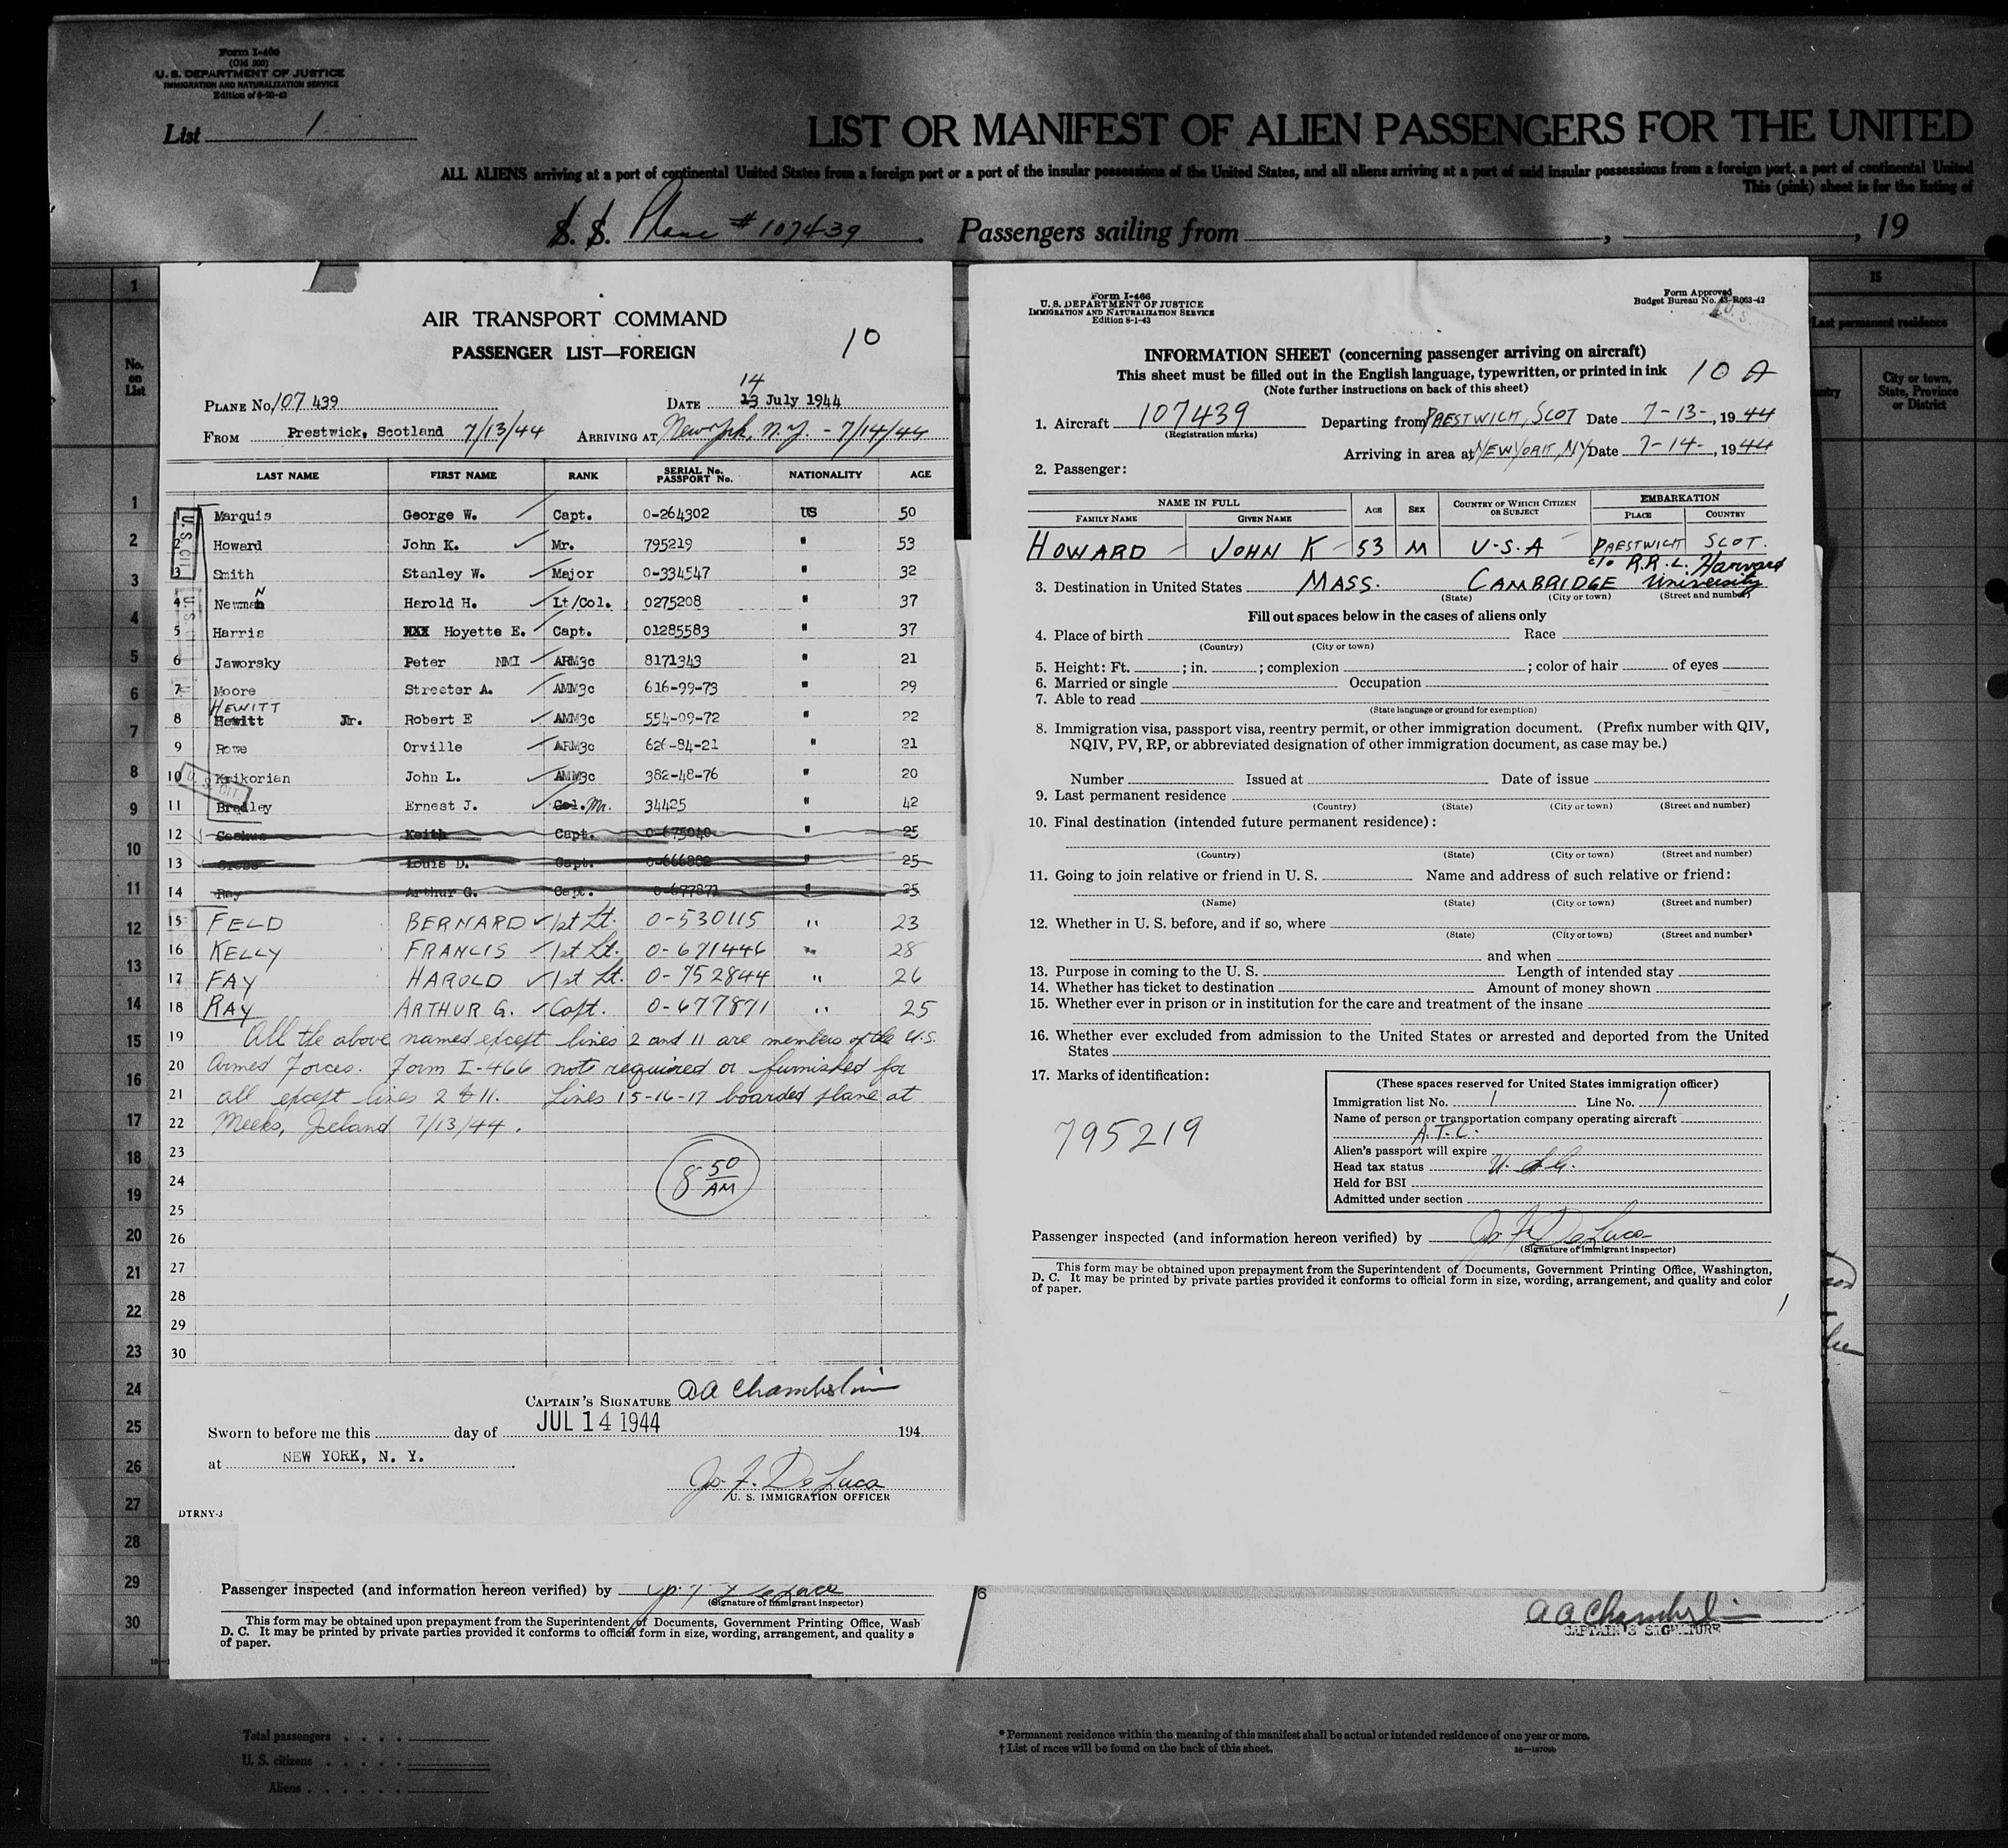 Form I-400
(Old 500)
U. S. DEPARTMENT OF JUSTICE
IMMIGRATION AND NATURALIZATION SERVICE
List 1
LIST OR MANIFEST OF ALIEN PASSENGERS FOR THE UNITED
ALL ALIENS arriving at a port of continental United States from a foreign port or a port of the insular possessions of the United States, and all aliens arriving at a port of said insular possessions from a foreign port, a part of continental United
This (pink) sheet is for the listing of
S. S. Plane # 107439 Passengers sailing from , , 19
1
No. on List
1
2
3
4
5
6
7
8
9
10
11
12
13
14
15
16
17
18
19
20
21
22
23
24
25
26
27
28
29
30
AIR TRANSPORT COMMAND
PASSENGER LIST—FOREIGN
10
PLANE No. 107 439 DATE 13 14 July 1944
FROM Prestwick, Scotland 7/13/44 ARRIVING AT New York, N.Y. - 7/14/44
LAST NAME FIRST NAME RANK SERIAL No. PASSPORT No. NATIONALITY AGE
1 Marquis George W. Capt. 0-264302 US 50
2 Howard John K. Mr. 795219 " 53
3 Smith Stanley W. Major 0-334547 " 32
4 Newman N Harold H. Lt/Col. 0275208 " 37
5 Harris XXX Hoyette E. Capt. 01285583 " 37
6 Jaworsky Peter NMI ARM3c 8171343 " 21
7 Moore Streeter A. AMM3c 616-99-73 " 29
HEWITT
8 Hewitt Jr. Robert E AMM3c 554-09-72 " 22
9 Rowe Orville ARM3c 626-84-21 " 21
10 Krikorian John L. AMM3c 382-48-76 " 20
11 Bradley Ernest J. Col. Mr. 34425 " 42
12 Keith Capt. 0-675040 " 25
13 Louis D. Capt. 0-666882 " 25
14 Ray Arthur G. Capt. 0-677871 " 25
15 FELD BERNARD 1st Lt. 0-530115 " 23
16 KELLY FRANCIS 1st Lt. 0-671446 " 28
17 FAY HAROLD 1st Lt. 0-752844 " 26
18 RAY ARTHUR G. Capt. 0-677871 " 25
19 All the above named except lines 2 and 11 are members of the U.S.
20 Armed Forces. Form I-466 not required or furnished for
21 all except lines 2 & 11. Lines 15-16-17 boarded plane at
22 Meeks, Iceland 7/13/44.
23
24
25
26
27
28
29
30
8 50 AM
CAPTAIN'S SIGNATURE A A Chamberlin
Sworn to before me this day of JUL 14 1944 194
at NEW YORK, N. Y.
Jos. F. DeLuca
U. S. IMMIGRATION OFFICER
DTRNY-3
Passenger inspected (and information hereon verified) by
(Signature of immigrant inspector)
This form may be obtained upon prepayment from the Superintendent of Documents, Government Printing Office, Wash
D. C. It may be printed by private parties provided it conforms to official form in size, wording, arrangement, and quality a
of paper.
Form I-466
U. S. DEPARTMENT OF JUSTICE
IMMIGRATION AND NATURALIZATION SERVICE
Edition 8-1-43
Form Approved
Budget Bureau No. 43-R063-42
INFORMATION SHEET (concerning passenger arriving on aircraft)
This sheet must be filled out in the English language, typewritten, or printed in ink
(Note further instructions on back of this sheet)
10 A
1. Aircraft 107439 Departing from PRESTWICK, SCOT Date 7-13-, 1944
(Registration marks)
Arriving in area at NEW YORK, NY Date 7-14-, 1944
2. Passenger:
NAME IN FULL AGE SEX COUNTRY OF WHICH CITIZEN OR SUBJECT EMBARKATION
FAMILY NAME GIVEN NAME PLACE COUNTRY
HOWARD JOHN K 53 M U-S-A PRESTWICK SCOT.
c/o R.R.L. Harvard
3. Destination in United States MASS. CAMBRIDGE University
(State) (City or town) (Street and number)
Fill out spaces below in the cases of aliens only
4. Place of birth Race
(Country) (City or town)
5. Height: Ft. ; in. ; complexion ; color of hair of eyes
6. Married or single Occupation
7. Able to read
(State language or ground for exemption)
8. Immigration visa, passport visa, reentry permit, or other immigration document. (Prefix number with QIV,
NQIV, PV, RP, or abbreviated designation of other immigration document, as case may be.)
Number Issued at Date of issue
9. Last permanent residence
(Country) (State) (City or town) (Street and number)
10. Final destination (intended future permanent residence):
(Country) (State) (City or town) (Street and number)
11. Going to join relative or friend in U. S. Name and address of such relative or friend:
(Name) (State) (City or town) (Street and number)
12. Whether in U. S. before, and if so, where
(State) (City or town) (Street and number)
and when
13. Purpose in coming to the U. S. Length of intended stay
14. Whether has ticket to destination Amount of money shown
15. Whether ever in prison or in institution for the care and treatment of the insane
16. Whether ever excluded from admission to the United States or arrested and deported from the United
States
17. Marks of identification:
795219
(These spaces reserved for United States immigration officer)
Immigration list No. 1 Line No. 1
Name of person or transportation company operating aircraft
A.T.C.
Alien's passport will expire
Head tax status
Held for BSI
Admitted under section
Passenger inspected (and information hereon verified) by Jos. F. DeLuca
(Signature of immigrant inspector)
This form may be obtained upon prepayment from the Superintendent of Documents, Government Printing Office, Washington,
D. C. It may be printed by private parties provided it conforms to official form in size, wording, arrangement, and quality and color
of paper.
15
Last permanent residence
City or town, State, Province or District
6
A A Chamberlin
CAPTAIN'S SIGNATURE
Total passengers
U. S. citizens
Aliens
* Permanent residence within the meaning of this manifest shall be actual or intended residence of one year or more.
† List of races will be found on the back of this sheet.